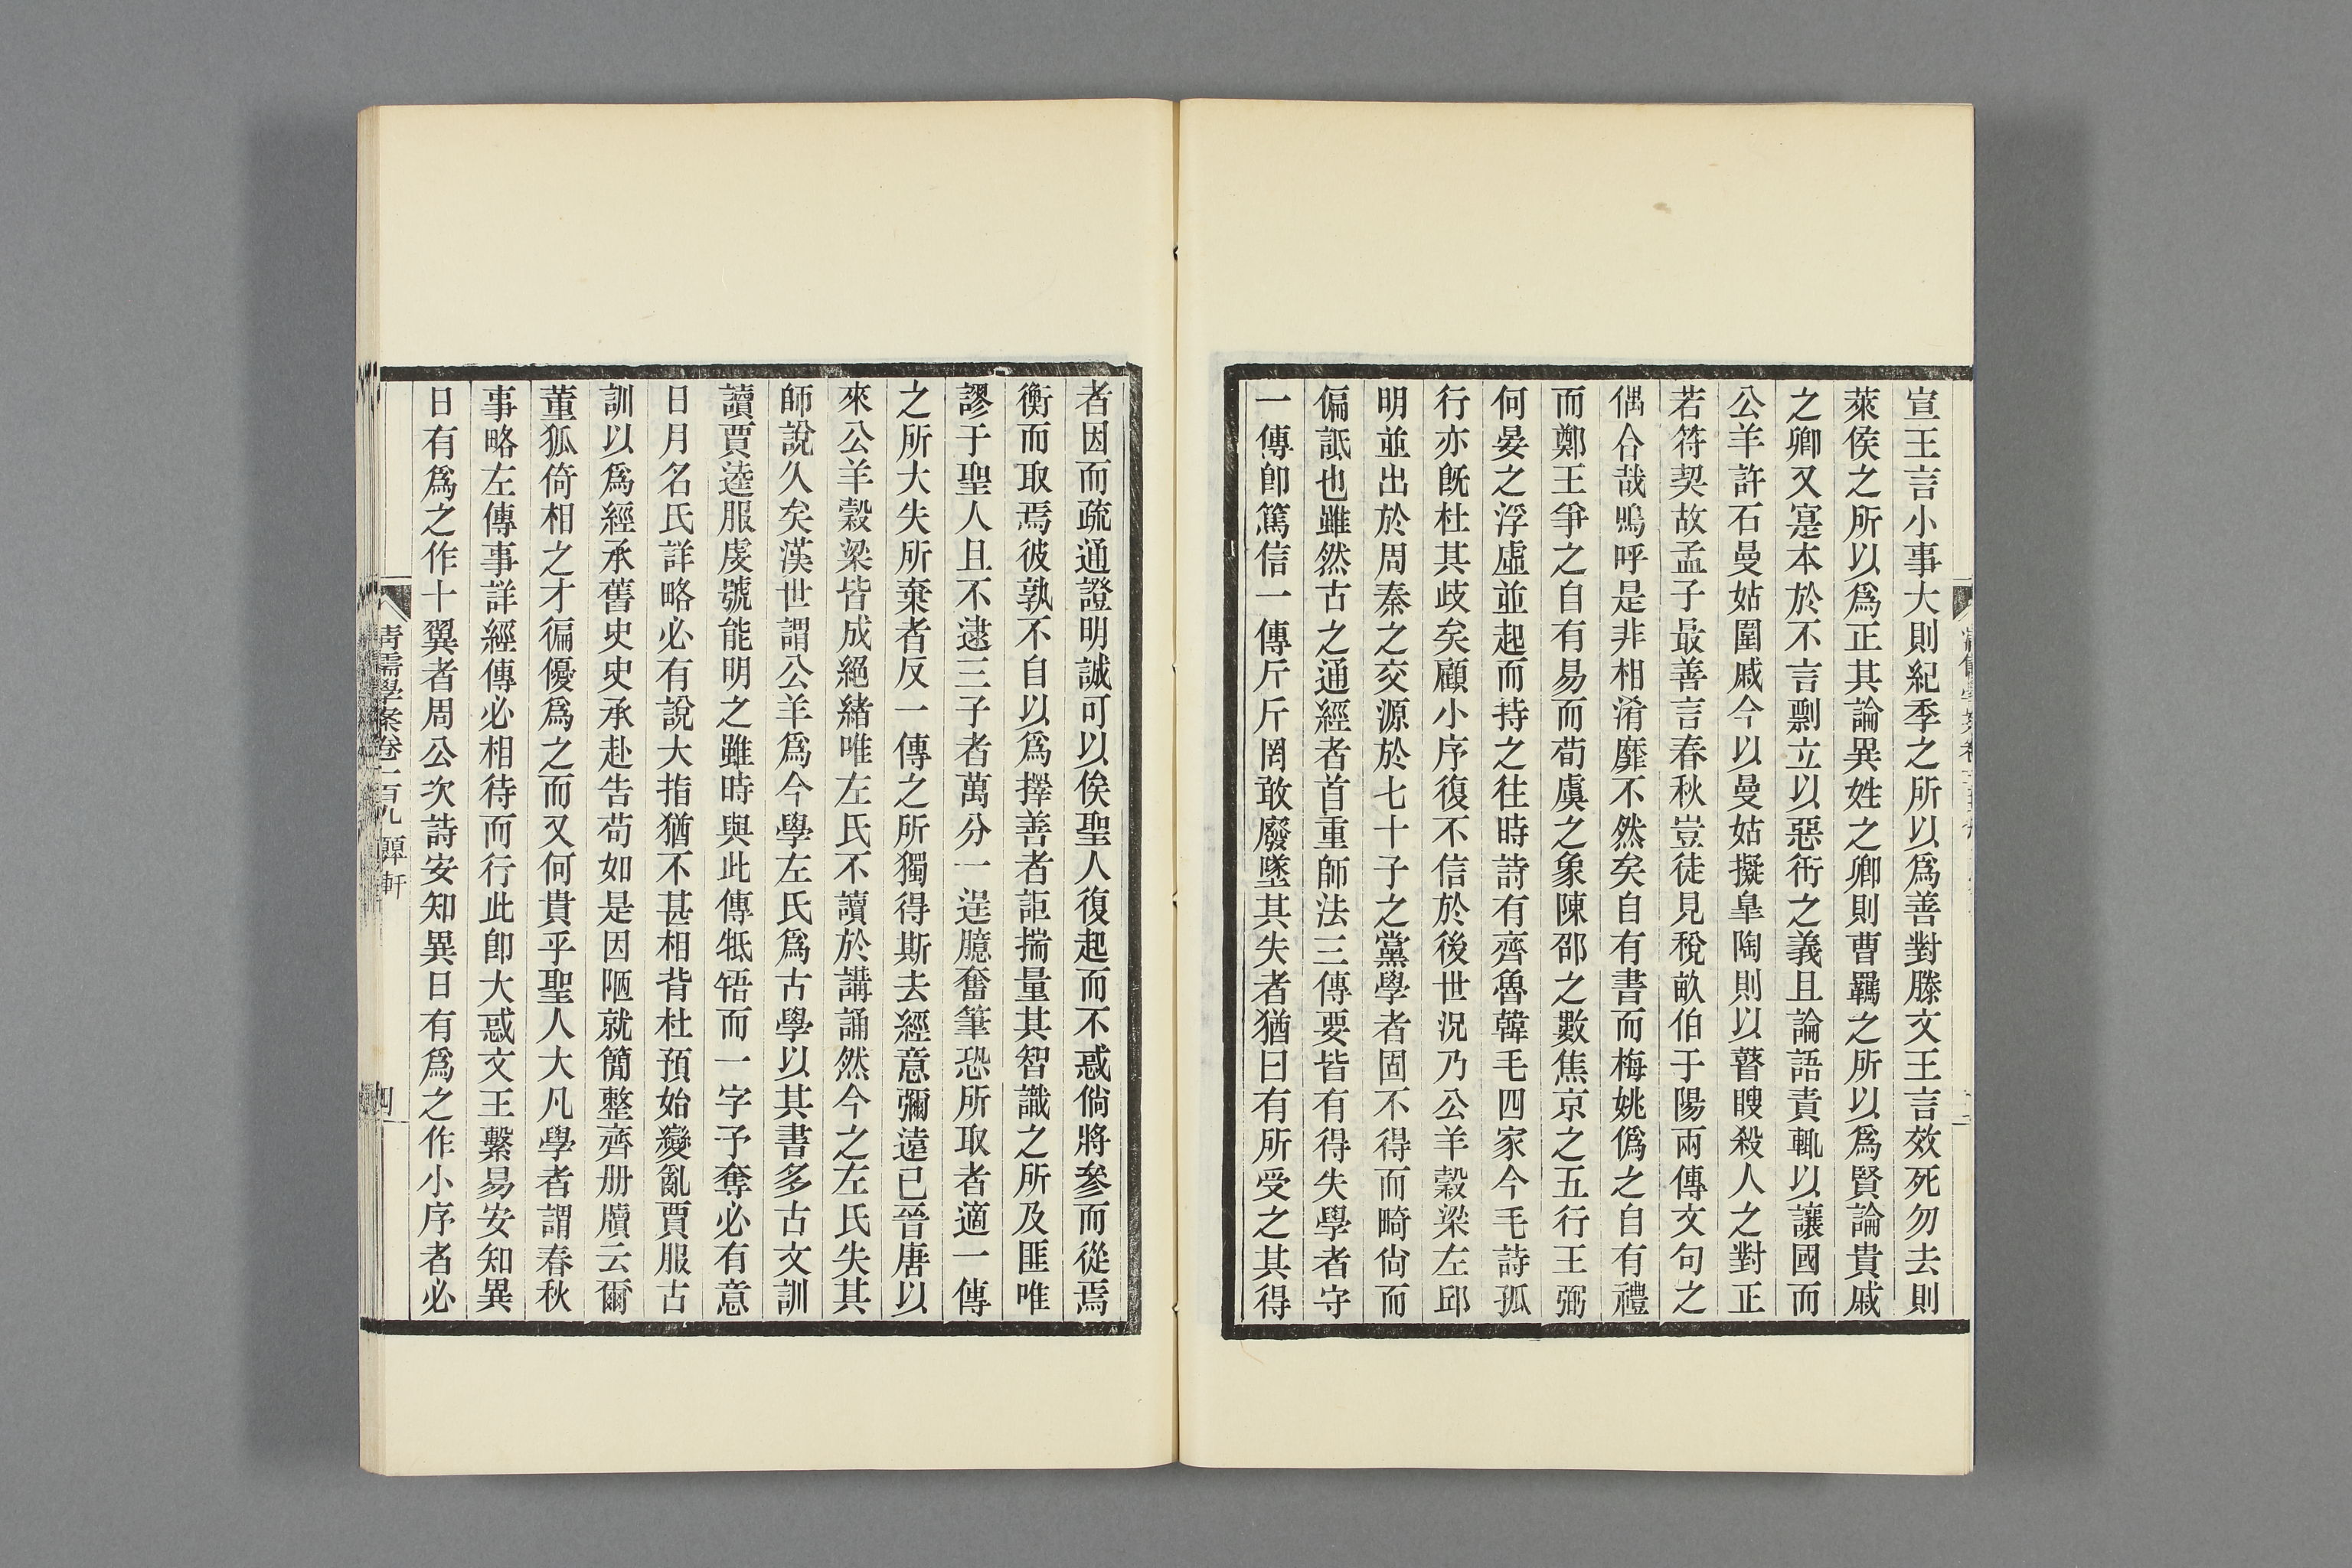 宣王言小事大則紀季之所以爲善對滕文王言效死勿去則
萊侯之所以爲正其論異姓之卿則曹羈之所以爲賢論貴戚
之卿又寔本於不言剽立以惡衎之義且論語責輒以讓國而
公羊許石曼姑圍戚今以曼姑擬皐陶則以瞽瞍殺人之對正
若符契故孟子最善言春秋豈徒見稅畝伯于陽兩傳文句之
偶合哉嗚呼是非相淆靡不然矣自有書而梅姚僞之自有禮
而鄭王爭之自有易而荀虞之象陳邵之數焦京之五行王弼
何晏之浮虛並起而持之往時詩有齊魯韓毛四家今毛詩孤
行亦旣杜其歧矣顧小序復不信於後世況乃公羊穀梁左邱
明並出於周秦之交源於七十子之黨學者固不得而畸尙而
偏詆也雖然古之通經者首重師法三傳要皆有得失學者守
一傳卽篤信一傳斤斤罔敢廢墜其失者猶曰有所受之其得
者因而疏通證明誠可以俟聖人復起而不惑倘將參而從焉
衡而取焉彼孰不自以爲擇善者詎揣量其智識之所及匪唯
謬于聖人且不逮三子者萬分一逞臆奮筆恐所取者適一傳
之所大失所棄者反一傳之所獨得斯去經意彌遠已晉唐以
來公羊穀梁皆成絕緒唯左氏不讀於講誦然今之左氏失其
師說久矣漢世謂公羊爲今學左氏爲古學以其書多古文訓
讀賈逵服虔號能明之雖時與此傳牴牾而一字予奪必有意
日月名氏詳略必有說大指猶不甚相背杜預始變亂賈服古
訓以爲經承舊史史承赴告苟如是因陋就簡整齊册牘云爾
董狐倚相之才徧優爲之而又何貴乎聖人大凡學者謂春秋
事略左傳事詳經傳必相待而行此卽大惑文王繫易安知異
日有爲之作十翼者周公次詩安知異日有爲之作小序者必
清儒學案卷一百九 䎓軒
四